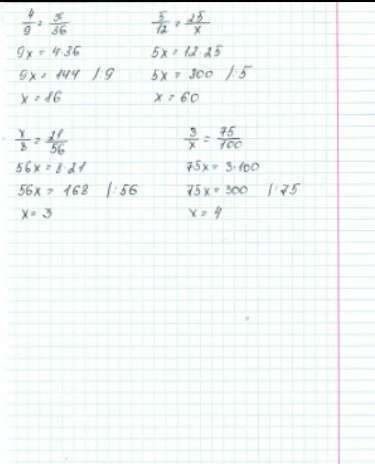 4/9 = x/36
9x = 4·36
9x = 144 /:9
x = 16
5/12 = 25/x
5x = 12·25
5x = 300 /:5
x = 60
x/8 = 21/56
56x = 8·21
56x = 168 /:56
x = 3
3/x = 75/100
75x = 3·100
75x = 300 /:75
x = 4